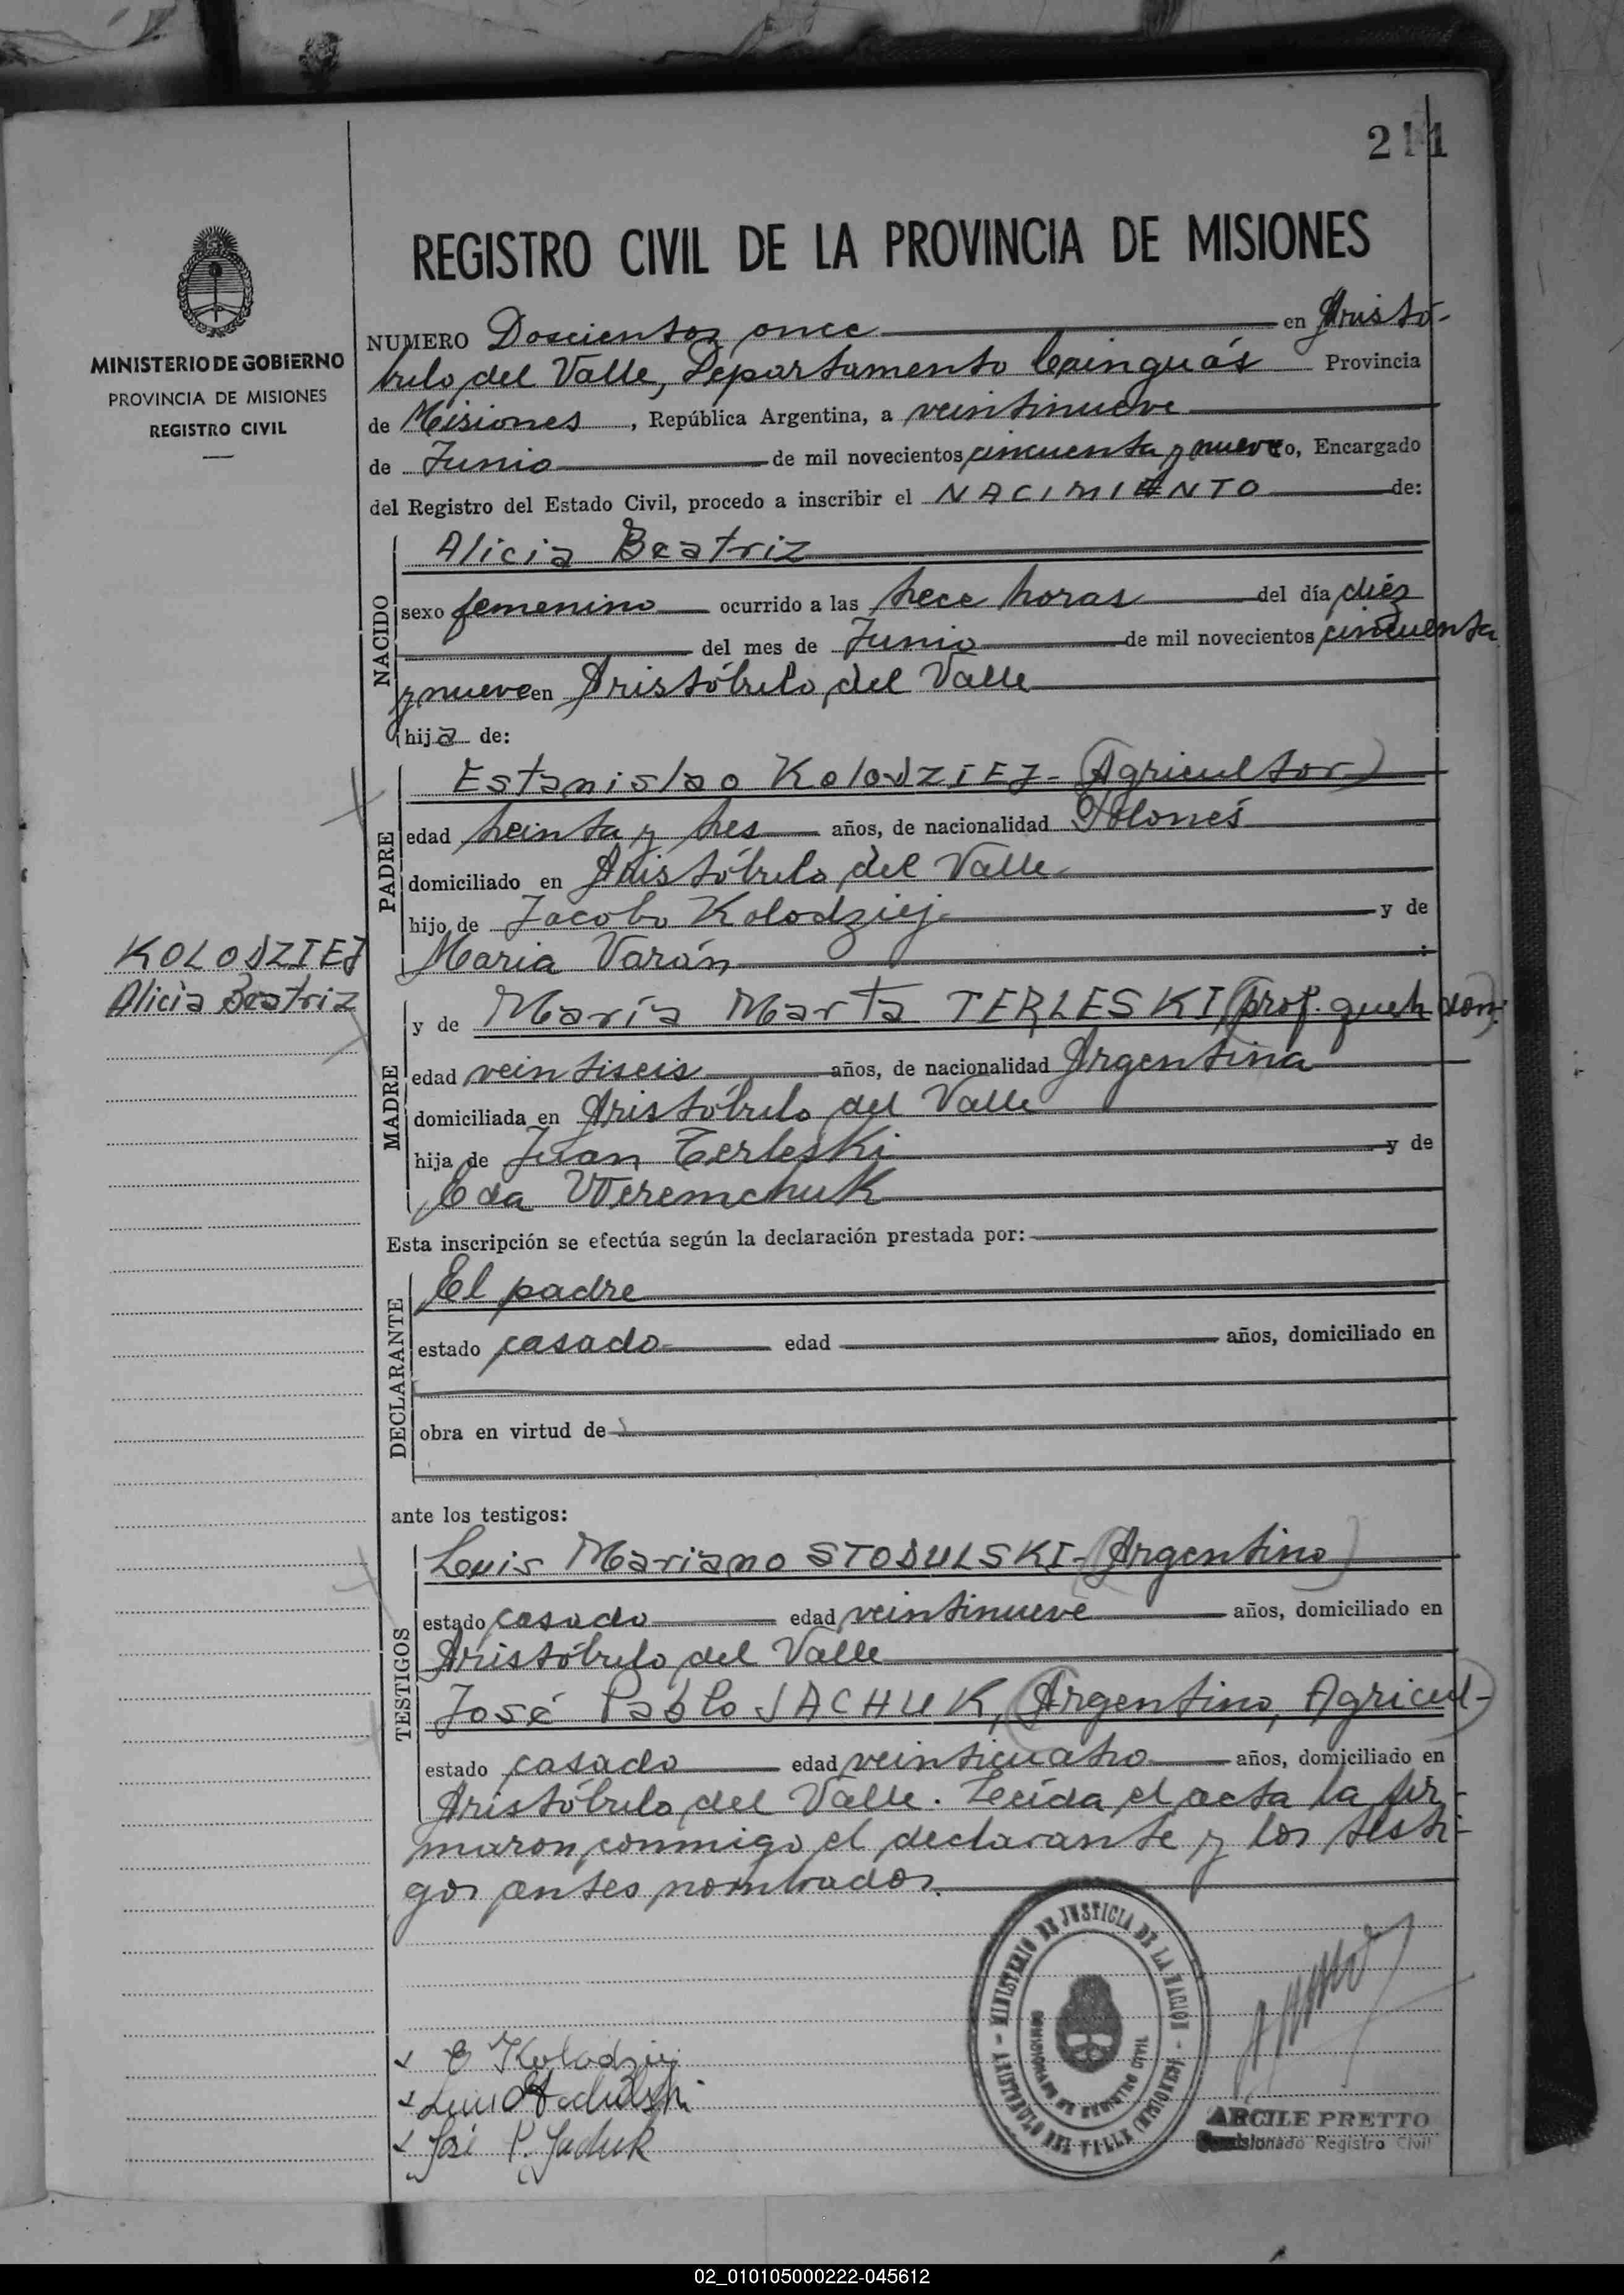 211
REGISTRO CIVIL DE LA PROVINCIA DE MISIONES
MINISTERIO DE GOBIERNO
PROVINCIA DE MISIONES
REGISTRO CIVIL
NUMERO Doscientos once en Aristó-
bulo del Valle, Departamento Cainguás Provincia
de Misiones, República Argentina, a veintinueve
de Junio de mil novecientos cincuenta y nueve yo, Encargado
del Registro del Estado Civil, procedo a inscribir el NACIMIENTO de:
NACIDO
Alicia Beatriz
sexo femenino ocurrido a las trece horas del día diéz
del mes de Junio de mil novecientos cincuenta
y nueve en Aristóbulo del Valle
hija de:
PADRE
Estanislao KolodZIEJ- (Agricultor)
edad treinta y tres años, de nacionalidad Polonés
domiciliado en Aristóbulo del Valle
hijo de Jacobo Kolodziej y de
Maria Varán :
KOLODZIEJ
Alicia Beatriz
MADRE
y de María Marta TERLESKI, (prof. queh dom.)
edad veintiseis años, de nacionalidad Argentina
domiciliada en Aristóbulo del Valle
hija de Juan Terleski y de
Eda Weremchuk
Esta inscripción se efectúa según la declaración prestada por:
DECLARANTE
El padre
estado casado edad años, domiciliado en
obra en virtud de
ante los testigos:
TESTIGOS
Luis Mariano STODULSKI- (Argentino)
estado casado edad veintinueve años, domiciliado en
Aristóbulo del Valle
José Pablo JACHUK, (Argentino, Agricul-)
estado casado edad veinticuatro años, domiciliado en
Aristóbulo del Valle. Leída el acta la fir-
maron conmigo el declarante y los testi-
gos antes nombrados.
MINISTERIO DE JUSTICIA DE LA NACION - ARISTOBULO DEL VALLE (MISIONES) -
COMISIONADO DE REGISTRO CIVIL
E Kolodziej
Luis Stodulski
José P. Jachuk
ARCILE PRETTO
Comisionado Registro Civil
02_010105000222-045612